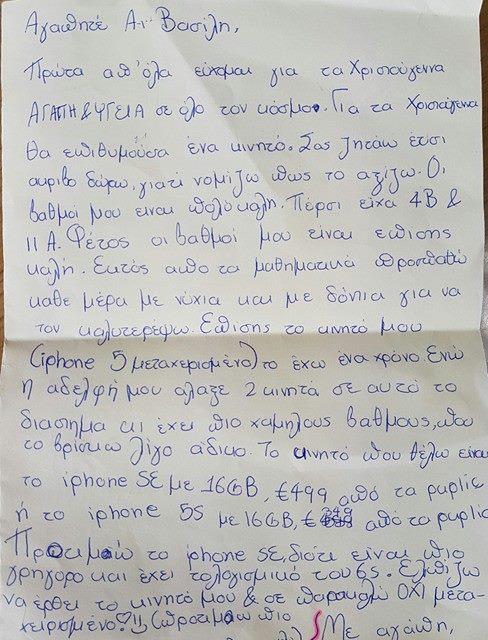 Αγαπητέ Αϊ Βασίλη,
Πρώτα απ'όλα εύχομαι για τα Χριστούγεννα
ΑΓΑΠΗ & ΥΓΕΙΑ σε όλο τον κόσμο. Για τα Χριστούγεννα
θα επιθυμούσα ένα κινητό. Σας ζητάω ετσι
ακριβο δώρο, γιατί νομίζω πως το αξίζω. Οι
βαθμοί μου ειναι πολύ καλη. Πέρσι είχα 4Β &
11 Α. Φέτος οι βαθμοί μου ειναι επισης
καλή. Εκτός απο τα μαθηματικά προσπαθώ
καθε μέρα με νύχια και με δόντια για να
τον καλυτερέψω. Επισης το κινητό μου
(iphone 5 μεταχερισμένο) το έχω ένα χρόνο. Ενώ
η αδελφή μου αλαξε 2 κινητά σε αυτό το
διαστημα κι έχει πιο χαμηλους βαθμους, που
το βρίσκω λίγο άδικο. Το κινητό που θέλω είναι
το iphone SE με 16GB, €499 από τα puplic
ή το iphone 5S με 16GB, € 349 από τα puplic
Προτιμώ το iphone SE, διότι είναι πιο
γρηγορο και έχει το λογισμικό του 6s. Ελπίζω
να έρθει το κινητό μου & σε παρακαλώ ΟΧΙ μετα-
χειρισμένο! (προτιμω πιο
Με αγάπη,